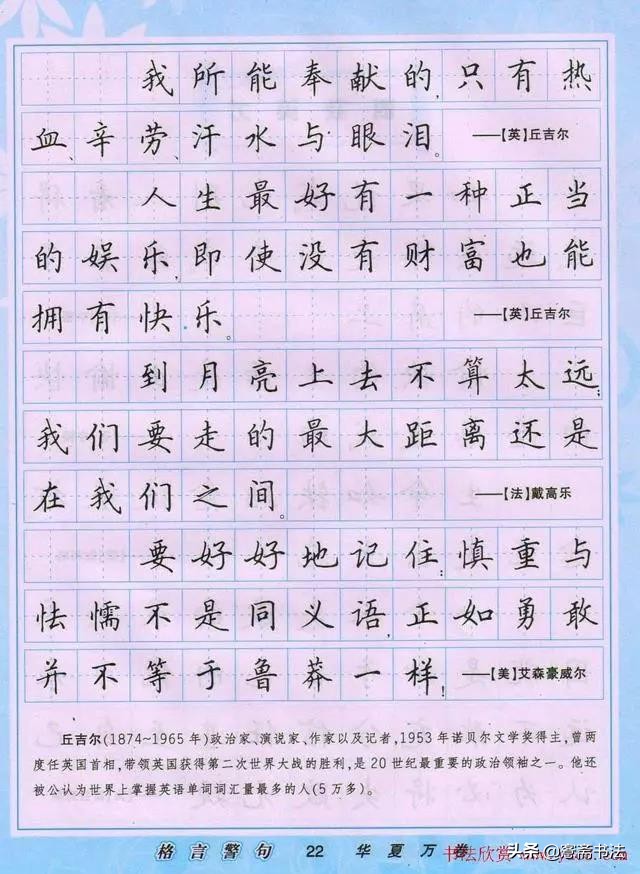 我所能奉献的,只有热
血、辛劳、汗水与眼泪。 ——【英】丘吉尔
人生最好有一种正当
的娱乐,即使没有财富也能
拥有快乐。 ——【英】丘吉尔
到月亮上去不算太远;
我们要走的最大距离还是
在我们之间。 ——【法】戴高乐
要好好地记住:慎重与
怯懦不是同义语,正如勇敢
并不等于鲁莽一样! ——【美】艾森豪威尔
丘吉尔(1874~1965年)政治家、演说家、作家以及记者,1953年诺贝尔文学奖得主,曾两
度任英国首相,带领英国获得第二次世界大战的胜利,是20世纪最重要的政治领袖之一。他还
被公认为世界上掌握英语单词词汇量最多的人(5万多)。
格言警句 22 华夏万卷 书法欣赏
头条@鸳斋书法